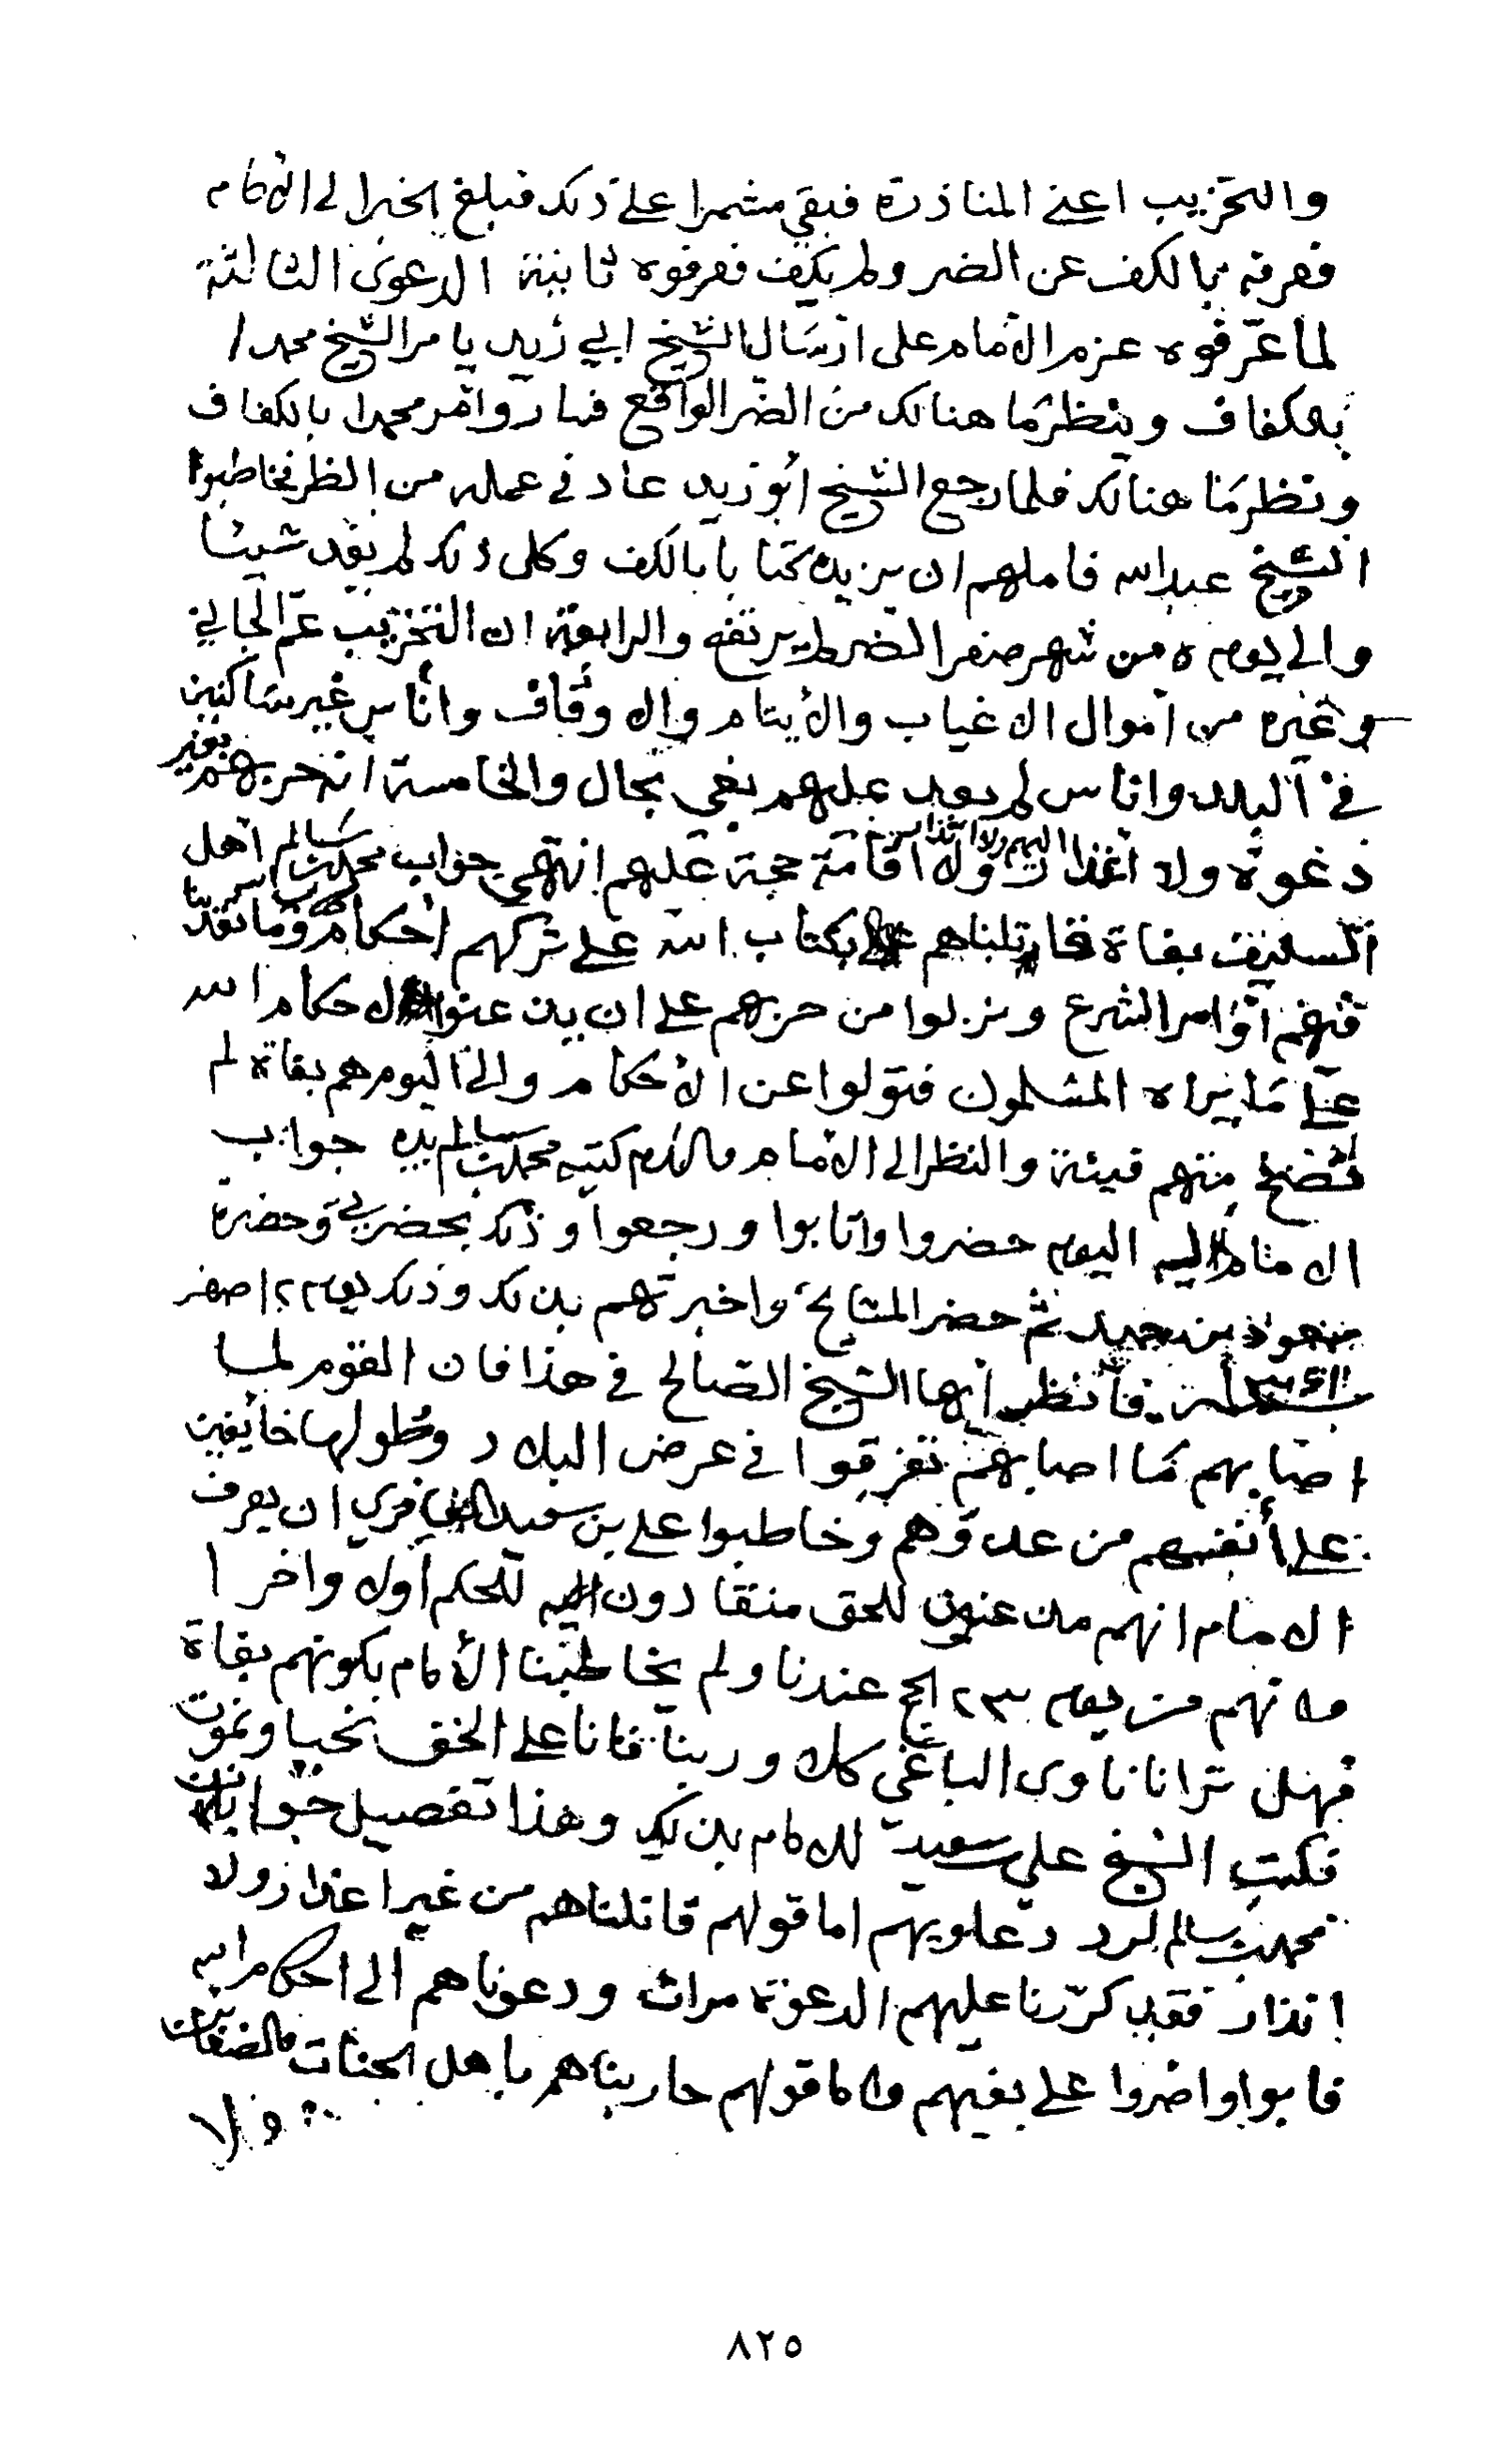 والتخريب اعني المناذرة فبقي مشمرا على ذلك فبلغ الخبر الى الامام
فعرفه بالكف عن الضر ولم يكف فعرفوه ثانية الدعوى الثالثة
لما عرّفوه عزم الامام على ارسال الشيخ ابي زيد يأمر الشيخ محمدا
بالكفاف وينظر ما هنالك من الضر الواقع فسار وامر محمدا بالكفاف
ونظر ما هنالك فلما رجع الشيخ ابو زيد عاد في عمله من الظر فخاطبوا
الشيخ عبدالله فاملهم ان يزيده كتابا بالكف وكل ذلك لم يفد شيئا
والى يوم ٥ من شهر صفر الضر لم يرتفع والرابعة ان التخريب عمّ الجاني
وغيره من اموال الاغياب والأيتام والاوقاف وأناس غير ساكنين
في البلد واناس لم يعد عليهم بغي بحال والخامسة انه حربهم بغير
دعوة ولا اعذار اليهم ولا انذار ولا اقامة حجة عليهم انتهى جواب محمد بن سالم اهل
السليف بغاة قاتلناهم بكتاب الله على تركهم احكام وما تقدمنا
فيهم اوامر الشرع ونزلوا من حربهم على ان يذعنوا لاحكام الله
على ما يراه المسلمون فتولوا عن الأحكام والى اليوم هم بغاة لم
تصح منهم فيئة والنظر الى الامام والسلام كتبه محمد بن سالم بيده جواب
الامام اليه اليوم حضروا وتابوا ورجعوا وذلك بحضرتي وحضرة
بن حميد ثم حضر المشايخ واخبرتهم بذلك وذلك يوم ١٢٢ صفر
فانظر ايها الشيخ الصالح في هذا فان القوم لما
اصابهم ما اصابهم تفرقوا في عرض البلاد وطولها خائفين
على أنفسهم من عدوهم وخاطبوا علي بن سعيد ان يعرف
الامام انهم مذعنون للحق منقادون اليه للحكم اولا واخرا
وانهم من يوم ٢٣ الحج عندنا ولم يخاطبنا الأمام بكونهم بغاة
فهل ترانا ناوى الباغي كلا وربنا فانا على الحق نحيا ونموت
فكتب الشيخ علي سعيد للامام بذلك وهذا تفصيل جوابات
محمد بن سالم لرد دعاويهم اما قولهم قاتلناهم من غير اعذار ولا
انذار فقد كررنا عليهم الدعوة مرات ودعوناهم الى احكام الله
فابوا واصروا على بغيهم واما قولهم حاربناهم باهل الجنات
ولا
٨٢٥